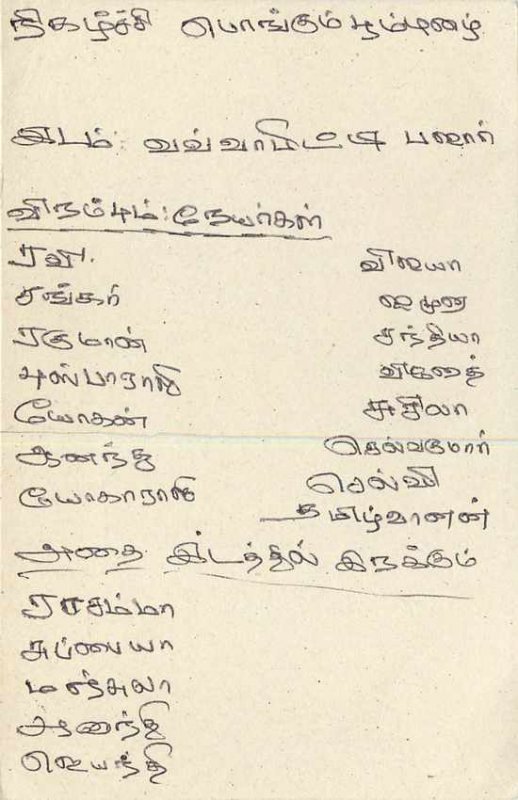 நிகழ்ச்சி பொங்கும் பூம்புனல்
இடம்: வவ்வாமிட்டி பஜார்
விரும்பும்: நேயர்கள்
ரவி. விஜயா
சங்கர் ஜமுனா
ரகுமான் சந்தியா
புஸ்பாராஜ் வினுஜத்
யோகன் சுசிலா
ஆனந்ஜ செல்வகுமார்
யோகாராஜ் செல்வி
தமிழ்வானன்
அதை இடத்தில் இருக்கும்
ராசம்மா
சுப்பையா
மஞ்சுலா
ஆனந்தி
ஜெயந்தி